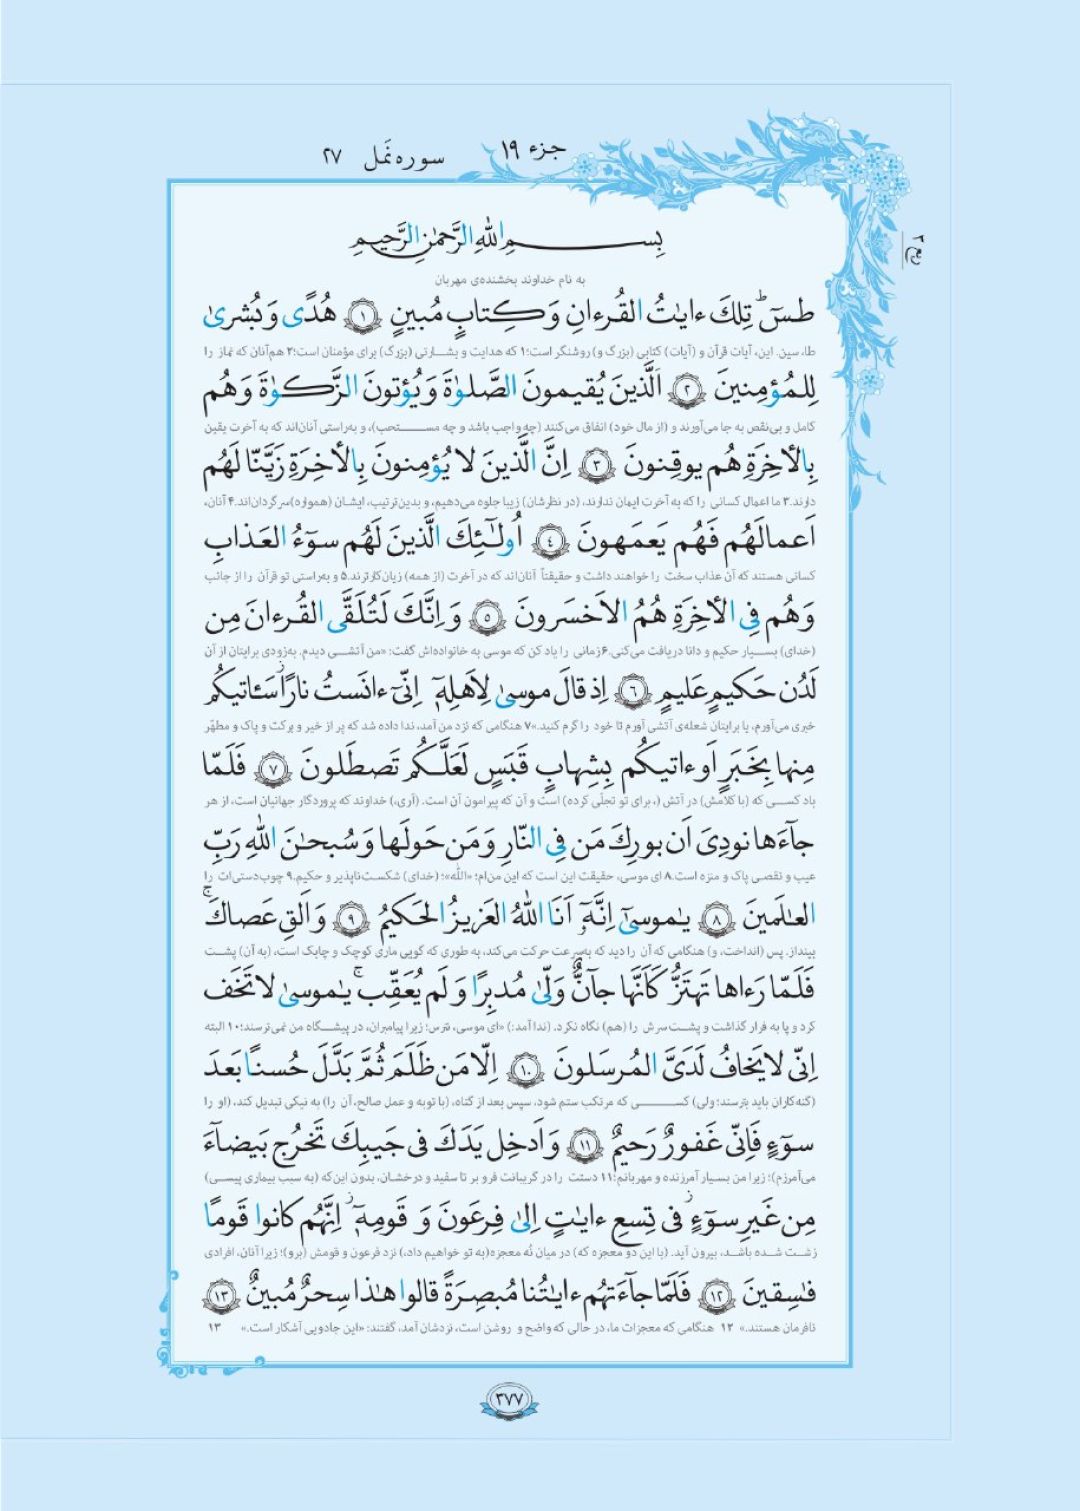 جزء ۱۹
سوره نَمل ۲۷
ربع ۳
بِسمِ اللهِ الرَّحمٰنِ الرَّحيمِ
به نام خداوند بخشنده‌ی مهربان
طسٓ ۚ تِلكَ ءايٰتُ القُرءانِ وَكِتابٍ مُبينٍ ۱ هُدًى وَ بُشرىٰ
طا، سین. این، آیات قرآن و (آیات) کتابی (بزرگ و) روشنگر است؛۱ که هدایت و بشارتی (بزرگ) برای مؤمنان است؛۲ هم‌آنان که نماز را
لِلمُؤمِنينَ ۲ اَلَّذينَ يُقيمونَ الصَّلوٰةَ وَ يُؤتونَ الزَّكوٰةَ وَ هُم
کامل و بی‌نقص به جا می‌آورند و (از مال خود) انفاق می‌کنند (چه واجب باشد و چه مستحب)، و به‌راستی آنان‌اند که به آخرت یقین
بِالأخِرَةِ هُم يوقِنونَ ۳ اِنَّ الَّذينَ لا يُؤمِنونَ بِالأخِرَةِ زَيَّنّا لَهُم
دارند.۳ ما اعمال کسانی را که به آخرت ایمان ندارند، (در نظرشان) زیبا جلوه می‌دهیم، و بدین‌ترتیب، ایشان (همواره) سرگردان‌اند.۴ آنان،
اَعمالَهُم فَهُم يَعمَهونَ ٤ اُولٰٓئِكَ الَّذينَ لَهُم سوٓءُ العَذابِ
کسانی هستند که آن عذاب سخت را خواهند داشت و حقیقتاً آنان‌اند که در آخرت (از همه) زیان‌کارترند.۵ و به‌راستی تو قرآن را از جانب
وَ هُم فِى الأخِرَةِ هُمُ الاَخسَرونَ ۵ وَ اِنَّكَ لَتُلَقَّى القُرءانَ مِن
(خدای) بسیار حکیم و دانا دریافت می‌کنی.۶ زمانی را یاد کن که موسی به خانواده‌اش گفت: «من آتشی دیدم. به‌زودی برایتان از آن
لَدُن حَكيمٍ عَليمٍ ٦ اِذ قالَ موسىٰ لِاَهلِهٓ اِنّىٓ ءانَستُ نارًا سَـٔاتيكُم
خبری می‌آورم، یا برایتان شعله‌ی آتشی آورم تا خود را گرم کنید.»۷ هنگامی که نزد من آمد، ندا داده شد که پر از خیر و برکت و پاک و مطهّر
مِنها بِخَبَرٍ اَو ءاتيكُم بِشِهابٍ قَبَسٍ لَعَلَّكُم تَصطَلونَ ۷ فَلَمّا
باد کسی که (با کلامش) در آتش (، برای تو تجلّی کرده) است و آن که پیرامون آن است. (آری،) خداوند که پروردگار جهانیان است، از هر
جآءَها نودِىَ اَن بورِكَ مَن فِى النّارِ وَ مَن حَولَها وَ سُبحٰنَ اللهِ رَبِّ
عیب و نقصی پاک و منزه است.۸ ای موسی، حقیقت این است که این من‌ام؛ «الله»؛ (خدای) شکست‌ناپذیر و حکیم.۹ چوب‌دستی‌ات را
العٰلَمينَ ۸ يٰموسىٰٓ اِنَّهٓ اَنَا اللهُ العَزيزُ الحَكيمُ ۹ وَ اَلقِ عَصاكَ ۚ
بینداز. پس (انداخت، و) هنگامی که آن را دید که به‌سرعت حرکت می‌کند، به طوری که گویی ماری کوچک و چابک است، (به آن) پشت
فَلَمّا رَءاها تَهتَزُّ كَاَنَّها جآنٌّ وَلّىٰ مُدبِرًا وَ لَم يُعَقِّب ۚ يٰموسىٰ لا تَخَف
کرد و پا به فرار گذاشت و پشت‌سرش را (هم) نگاه نکرد. (ندا آمد:) «ای موسی، نترس؛ زیرا پیامبران، در پیشگاه من نمی‌ترسند؛۱۰ البته
اِنّى لا يَخافُ لَدَىَّ المُرسَلونَ ۱۰ اِلّا مَن ظَلَمَ ثُمَّ بَدَّلَ حُسنًا بَعدَ
(گنه‌کاران باید بترسند؛ ولی) کسی که مرتکب ستم شود، سپس بعد از گناه، (با توبه و عمل صالح، آن را) به نیکی تبدیل کند، (او را
سوٓءٍ فَاِنّى غَفورٌ رَحيمٌ ۱۱ وَ اَدخِل يَدَكَ فى جَيبِكَ تَخرُج بَيضآءَ
می‌آمرزم)؛ زیرا من بسیار آمرزنده و مهربانم؛۱۱ دستت را در گریبانت فرو بر تا سفید و درخشان، بدون این‌که (به سبب بیماری پیسی)
مِن غَيرِ سوٓءٍ ۖ فى تِسعِ ءايٰتٍ اِلىٰ فِرعَونَ وَ قَومِهٓ ۚ اِنَّهُم كانوا قَومًا
زشت شده باشد، بیرون آید. (با این دو معجزه که) در میان نُه معجزه (به تو خواهیم داد،) نزد فرعون و قومش (برو)؛ زیرا آنان، افرادی
فٰسِقينَ ۱۲ فَلَمّا جآءَتهُم ءايٰتُنا مُبصِرَةً قالوا هٰذا سِحرٌ مُبينٌ ۱۳
نافرمان هستند.» ۱۲ هنگامی که معجزات ما، در حالی که واضح و روشن است، نزدشان آمد، گفتند: «این جادویی آشکار است.» ۱۳
۳۷۷